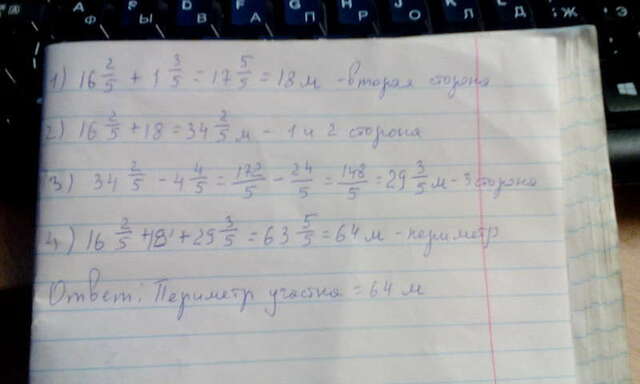 A Ы D B F A G П H P J O K Л L Д ; Ж Э
1) 16 2/5 + 1 3/5 = 17 5/5 = 18 м - вторая сторона
2) 16 2/5 + 18 = 34 2/5 м - 1 и 2 сторона
3) 34 2/5 - 4 4/5 = 172/5 - 24/5 = 148/5 = 29 3/5 м - 3 сторона
4) 16 2/5 + 18 + 29 3/5 = 63 5/5 = 64 м - периметр
Ответ: Периметр участка = 64 м